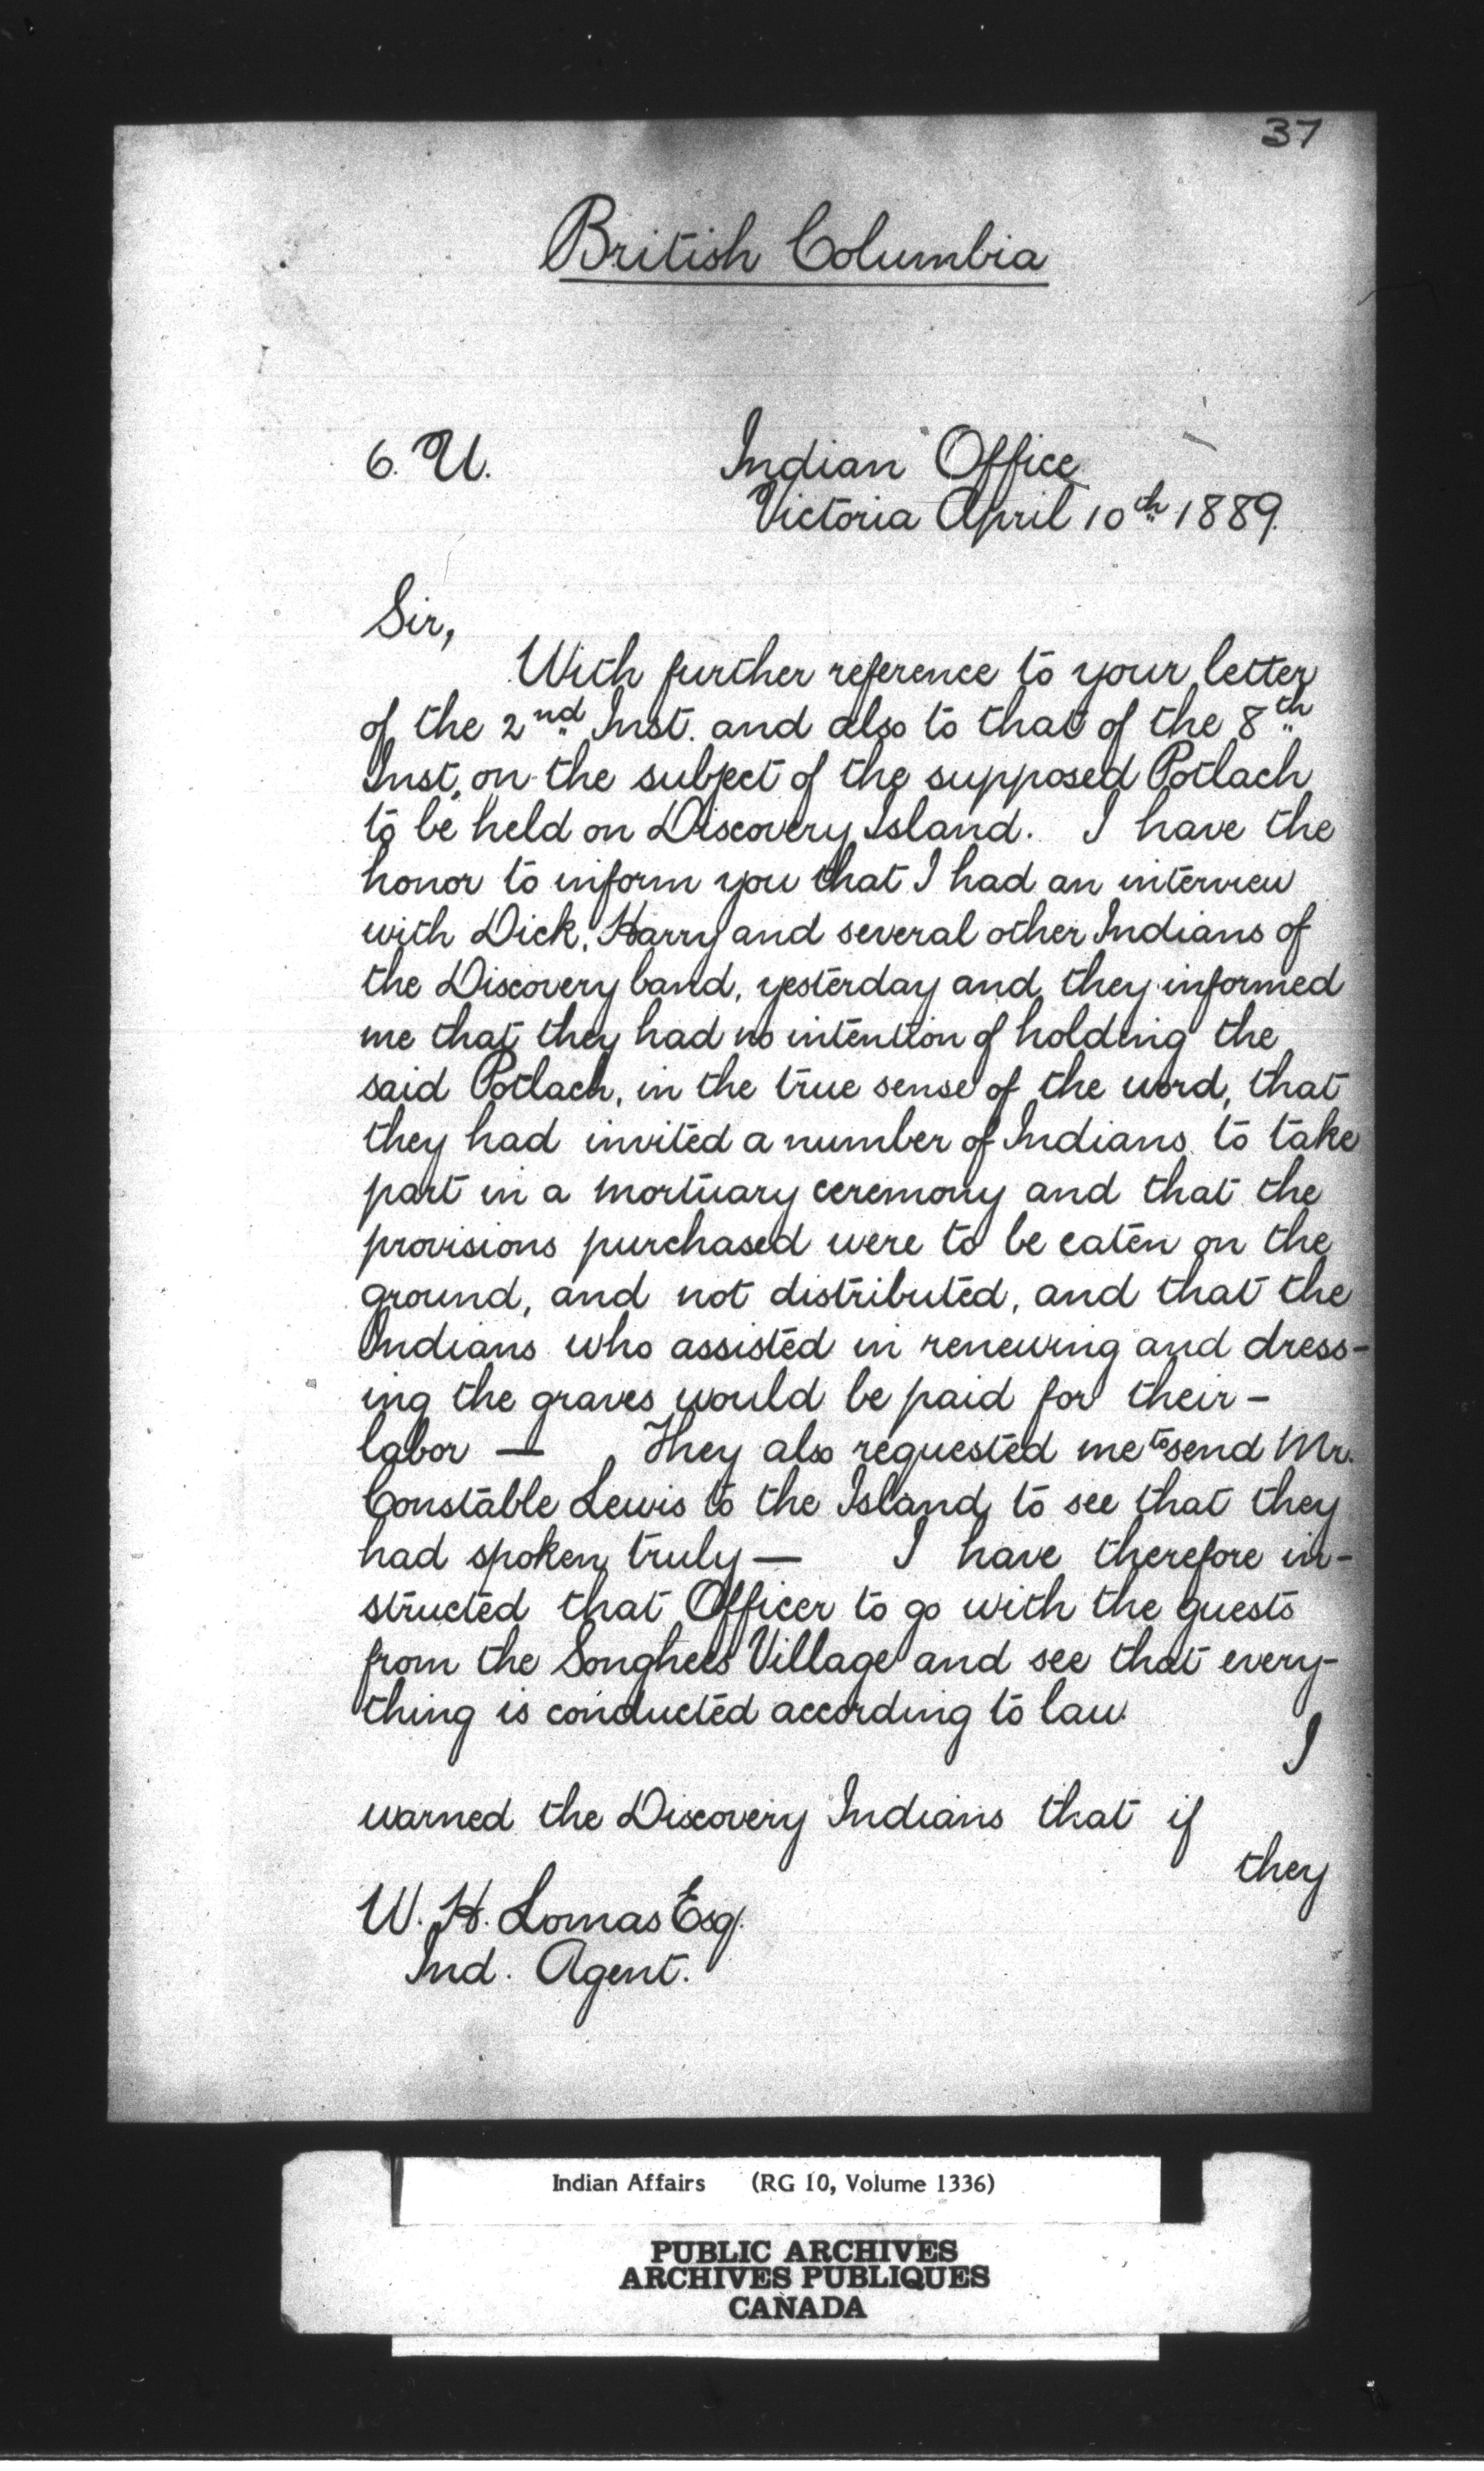 37
British Columbia
6. U. Indian Office
Victoria April 10th 1889.
Sir,
With further reference to your letter
of the 2nd Inst. and also to that of the 8th
Inst, on the subject of the supposed Potlach
to be held on Discovery Island. I have the
honor to inform you that I had an interview
with Dick, Harry and several other Indians of
the Discovery band, yesterday and they informed
me that they had no intention of holding the
said Potlach, in the true sense of the word, that
they had invited a number of Indians to take
part in a mortuary ceremony and that the
provisions purchased were to be eaten on the
ground, and not distributed, and that the
Indians who assisted in renewing and dress-
ing the graves would be paid for their -
labor — They also requested me to send Mr.
Constable Lewis to the Island to see that they
had spoken truly — I have therefore in-
structed that Officer to go with the guests
from the Songhees Village and see that every-
thing is conducted according to law.
I
warned the Discovery Indians that if
they
W. H. Lomas Esq.
Ind. Agent.
Indian Affairs (RG 10, Volume 1336)
PUBLIC ARCHIVES
ARCHIVES PUBLIQUES
CANADA